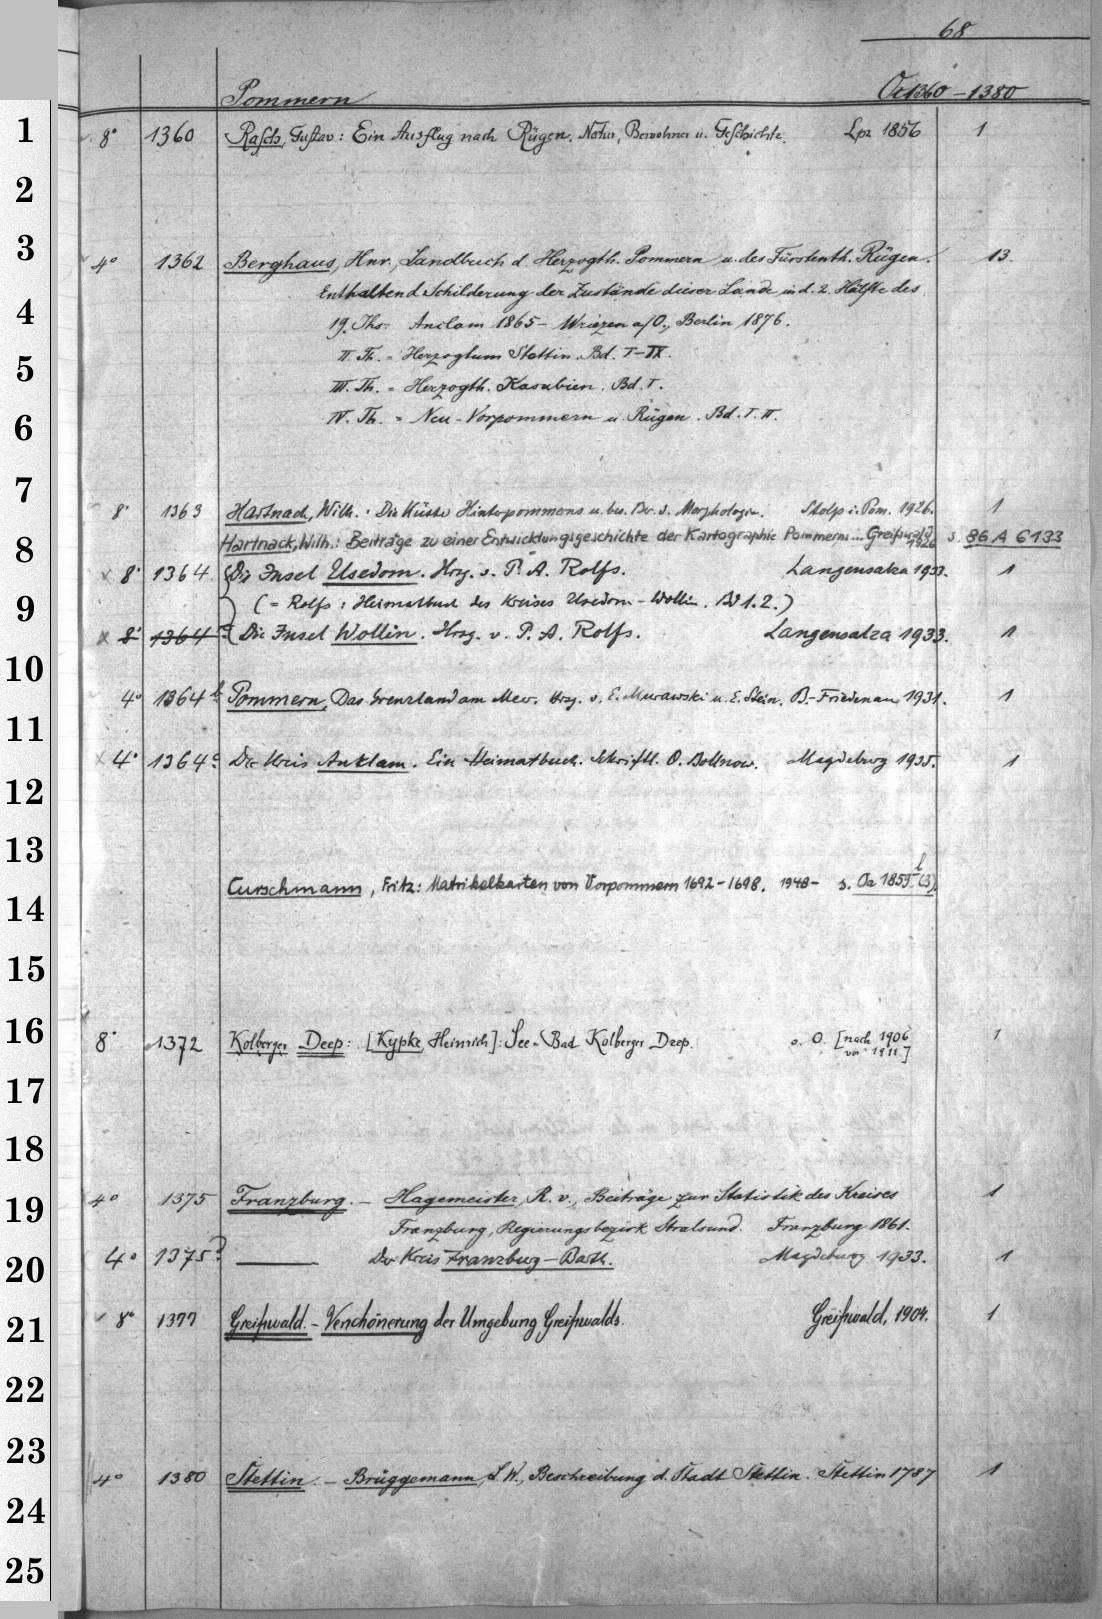 68
Pommern Oc 1360 - 1380
1 8° 1360 Rasch, Gustav: Ein Ausflug nach Rügen. Natur, Bewohner u. Geschichte. Lpz 1856 1
2
3 4° 1362 Berghaus, Hnr., Landbuch d. Herzogth. Pommern u. des Fürstenth. Rügen. 13.
Enthaltend Schilderung der Zustände dieser Lande in d. 2. Hälfte des
4 19. Jhs. Anclam 1865 - Wriezen a/O., Berlin 1876.
II. Th. = Herzogtum Stettin. Bd. I-IX.
5 III. Th. = Herzogth. Kasubien. Bd. I.
6 IV. Th. = Neu-Vorpommern u. Rügen. Bd. I. II.
7 8° 1363 Hartnack, Wilh.: Die Küste Hinterpommerns u. bes. Ber. d. Morphologie. Stolp i. Pom. 1926. 1
8 Hartnack, Wilh.: Beiträge zu einer Entwicklungsgeschichte der Kartographie Pommerns... Greifswald 1926 s. 86 A 6133
x 8° 1364 Die Insel Usedom. Hrsg. v. P. A. Rolfs. Langensalza 1933. 1
9 (= Rolfs: Heimatbuch des Kreises Usedom-Wollin. Bd 1. 2.)
x 8° 1364a Die Insel Wollin. Hrsg. v. P. A. Rolfs. Langensalza 1933. 1
10
4° 1364b Pommern, Das Grenzland am Meer. Hrsg. v. E. Murawski u. E. Stein. B.-Friedenau 1931. 1
11
x 4° 1364c Der Kreis Anklam. Ein Heimatbuch. Schriftl. O. Bollnow. Magdeburg 1935. 1
12
13
Curschmann, Fritz: Matrikelkarten von Vorpommern 1692-1698. 1948- s. Oz 1855 b (3).
14
15
16 8° 1372 Kolberger Deep: [Kypke, Heinrich]: See-Bad Kolberger Deep. o. O. [nach 1906 1
vor 1911]
17
18
19 4° 1375 Franzburg. - Hagemeister, R. v., Beiträge zur Statistik des Kreises 1
Franzburg, Regierungsbezirk Stralsund. Franzburg 1861.
20 4° 1375a Der Kreis Franzburg-Barth. Magdeburg 1933. 1
21 8° 1377 Greifswald. - Verschönerung der Umgebung Greifswalds. Greifswald, 1904. 1
22
23
4° 1380 Stettin. - Brüggemann, L. W., Beschreibung d. Stadt Stettin. Stettin 1787 1
24
25